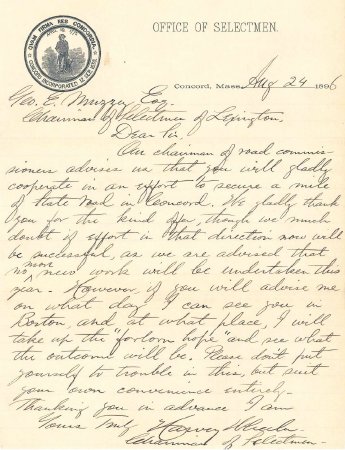 QUAM FIRMA RES CONCORDIA
CONCORD INCORPORATED
OFFICE OF SELECTMEN.
Concord, Mass. Aug 24 1896
Geo. E. Muzzey Esq.
Chairman of Selectmen of Lexington,
Dear Sir.
Our chairman of road commis-
sioners advises us that you will gladly
cooperate in an effort to secure a mile
of State road in Concord. We gladly thank
you for the kind offer, though we much
doubt if effort in that direction now will
be successful, as we are advised that
no more "new" work will be undertaken this
year. However, if you will advise me
on what day I can see you in
Boston, and at what place, I will
take up the "forlorn hope" and see what
the outcome will be. Please don't put
yourself to trouble in this, but suit
your own convenience entirely.
Thanking you in advance I am
Yours Truly Harvey Wheeler
Chairman of Selectmen